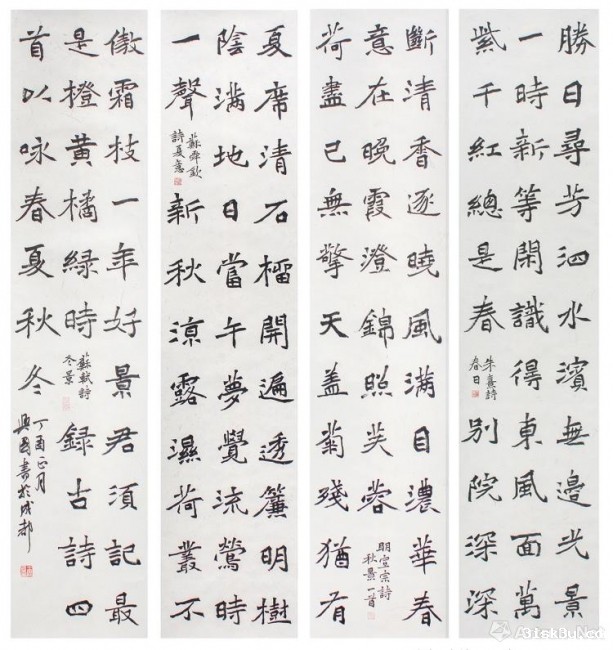 勝日尋芳泗水濱無邊光景
一時新等閑識得東風面萬
紫千紅總是春
朱熹詩
春日
別院深深
斷清香逐曉風滿目濃華春
意在晚霞澄錦照芙蓉
明宣宗詩
秋景一首
荷盡已無擎天蓋菊殘猶有
夏席清石榴開遍透簾明樹
陰滿地日當午夢覺流鶯時
一聲
蘇舜欽
詩夏意
新秋涼露濕荷叢不
傲霜枝一年好景君須記最
是橙黃橘緑時
蘇軾詩
冬景
録古詩四
首以咏春夏秋冬
丁酉正月
興國書於成都